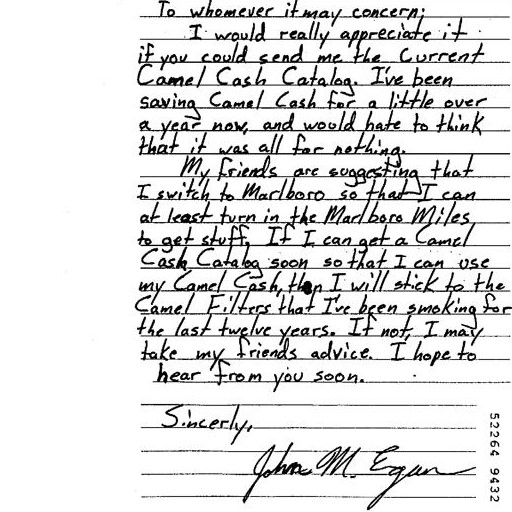 To whomever it may concern;
I would really appreciate it
if you could send me the Current
Camel Cash Catalog. I've been
saving Camel Cash for a little over
a year now, and would hate to think
that it was all for nothing.
My friends are suggesting that
I switch to Marlboro so that I can
at least turn in the Marlboro Miles
to get stuff. If I can get a Camel
Cash Catalog soon so that I can use
my Camel Cash, then I will stick to the
Camel Filters that I've been smoking for
the last twelve years. If not, I may
take my friends advice. I hope to
hear from you soon.
Sincerly,
John M. Egan
52264 9432